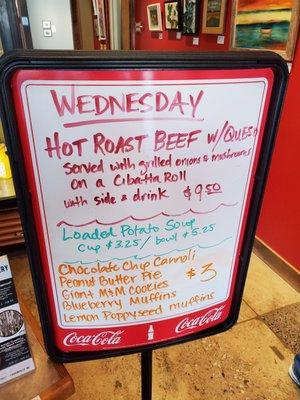 WEDNESDAY
HOT ROAST BEEF W/ QUESO
Served with grilled onions & mushrooms
on a Cibatta Roll
with side & drink $9.50
Loaded Potato Soup
Cup $3.25 / bowl $5.25
Chocolate Chip Cannoli
Peanut Butter Pie
Giant M&M Cookies $3
Blueberry Muffins
Lemon Poppyseed muffins
Coca-Cola
Coca-Cola